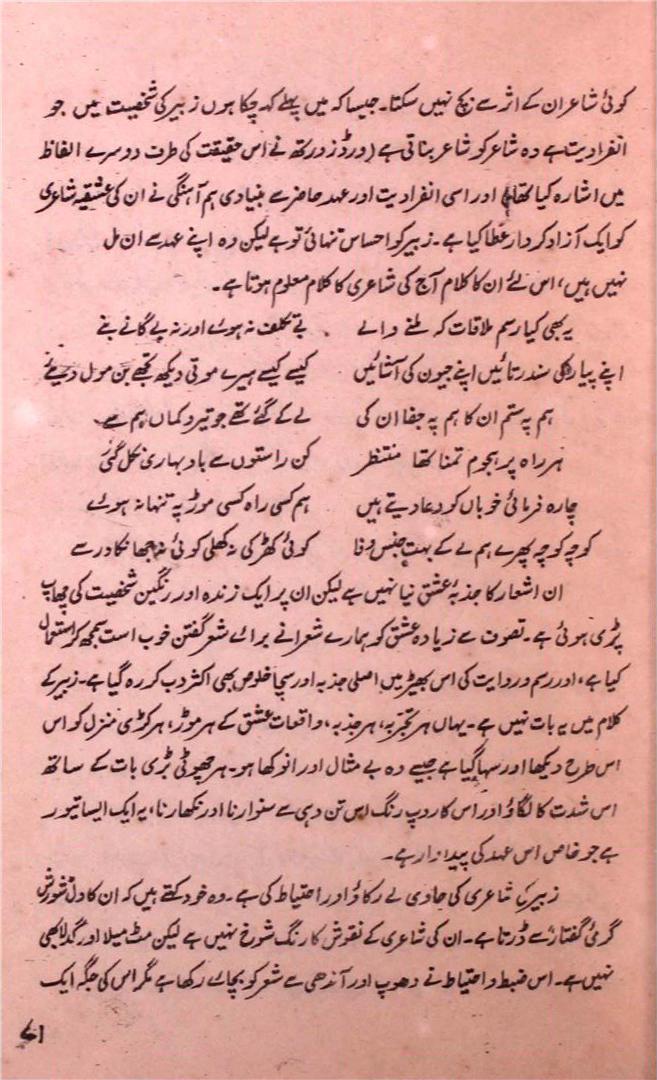 کوئی شاعر ان کے اثر سے بچ نہیں سکتا۔ جیسا کہ میں پہلے کہہ چکا ہوں زبیر کی شخصیت میں جو
انفرادیت ہے وہ شاعر کو شاعر بناتی ہے (ورڈزورتھ نے اس حقیقت کی طرف دوسرے الفاظ
میں اشارہ کیا تھا) اور اسی انفرادیت اور عہد حاضر سے بنیادی ہم آہنگی نے ان کی عشقیہ شاعری
کو ایک آزاد کردار عطا کیا ہے۔ زبیر کو احساس تنہائی تو ہے لیکن وہ اپنے عہد سے ان مل
نہیں ہیں، اس لئے ان کا کلام آج کی شاعری کا کلام معلوم ہوتا ہے۔
یہ بھی کیا رسم ملاقات کہ ملنے والے بے تکلف نہ ہوئے اور نہ بے گانے بنے
اپنے پیار کی سندرتائیں اپنے جیون کی آشائیں کیسے کیسے ہیرے موتی دیکھ تجھے بن مول دیئے
ہم پہ ستم ان کا ہم پہ جفا ان کی لے کے گئے تھے جو تیر و کماں ہم سے
ہر راہ پر ہجوم تمنا تھا منتظر کن راستوں سے باد بہاری نکل گئی
چارہ فرمائی خوباں کو دعا دیتے ہیں ہم کسی راہ کسی موڑ پہ تنہا نہ ہوئے
کوچہ کوچہ پھرے ہم لے کے بہت جنس وفا کوئی کھڑکی نہ کھلی کوئی نہ جھانکا در سے
ان اشعار کا جذبۂ عشق نیا نہیں ہے لیکن ان پر ایک زندہ اور رنگین شخصیت کی چھاپ
پڑی ہوئی ہے۔ تصوف سے زیادہ عشق کو ہمارے شعرا نے برائے شعر گفتن خوب است سمجھ کر استعمال
کیا ہے، اور رسم و روایت کی اس بھیڑ میں اصلی جذبہ اور سچا خلوص بھی اکثر دب کر رہ گیا ہے۔ زبیر کے
کلام میں یہ بات نہیں ہے۔ یہاں ہر تجربہ، ہر جذبہ، واقعات عشق کے ہر موڑ، ہر کڑی منزل کو اس
اس طرح دیکھا اور سہا گیا ہے جیسے وہ بے مثال اور انوکھا ہو۔ ہر چھوٹی بڑی بات کے ساتھ
اس شدت کا لگاؤ اور اس کا روپ رنگ اس تن دہی سے سنوارنا اور نکھارنا، یہ ایک ایسا تیور
ہے جو خاص اس عہد کی پیداوار ہے۔
زبیر کی شاعری کی جاوی لے رکاؤ اور احتیاط کی ہے۔ وہ خود کہتے ہیں کہ ان کا دل شورش
گرئ گفتار سے ڈرتا ہے۔ ان کی شاعری کے نقوش کا رنگ شوخ نہیں ہے لیکن مٹ میلا اور گدلا بھی
نہیں ہے۔ اس ضبط و احتیاط نے دھوپ اور آندھی سے شعر کو بچائے رکھا ہے مگر اس کی جگہ ایک